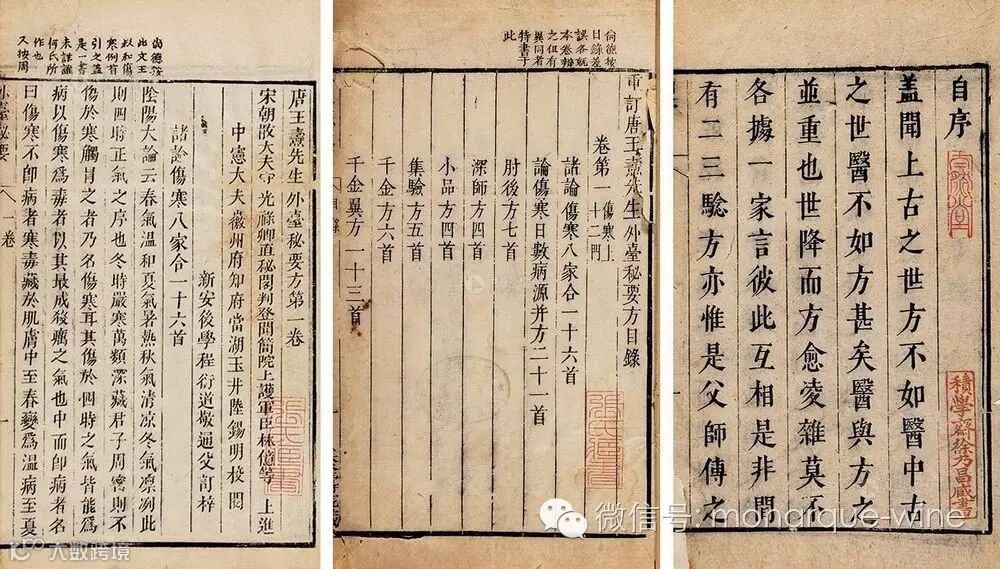 自序
蓋聞上古之世方不如醫中古
之世醫不如方甚矣醫與方之
並重也世降而方愈淩雜莫不
各據一家言彼此互相是非間
有二三騐方亦惟是父師傳之
積學齋徐乃昌藏書
尚德按
目錄差
誤各就
本卷辯
之但有
異同者
特書于
此
重訂唐王燾先生外臺秘要方目錄
卷第一 傷寒上一十二門
諸論傷寒八家合一十六首
論傷寒日數病源并方二十一首
肘後方七首
深師方四首
小品方四首
集驗方五首
千金方六首
千金翼方一十三首
目錄
尚德按
此文王
叔和傷
寒例有
引之蓋
是一書
未詳誰
何氏所
作也
又按周
唐王燾先生外臺秘要方第一卷
宋朝散大夫守光祿卿直秘閣判登聞簡院上護軍臣林億等 上進
中憲大夫徽州府知府當湖玉井陸錫明校閱
新安後學程衍道敬通父訂梓
諸論傷寒八家合一十六首
陰陽大論云春氣溫和夏氣暑熱秋氣清凉冬氣凛冽此
則四時正氣之序也冬時嚴寒萬類深藏君子周密則不
傷於寒觸冒之者乃名傷寒耳其傷於四時之氣皆能爲
病以傷寒爲毒者以其最成殺癘之氣也中而卽病者名
曰傷寒不卽病者寒毒藏於肌膚中至春變爲溫病至夏
外臺秘要 一卷
微信号: monarque-wine
大数跨境